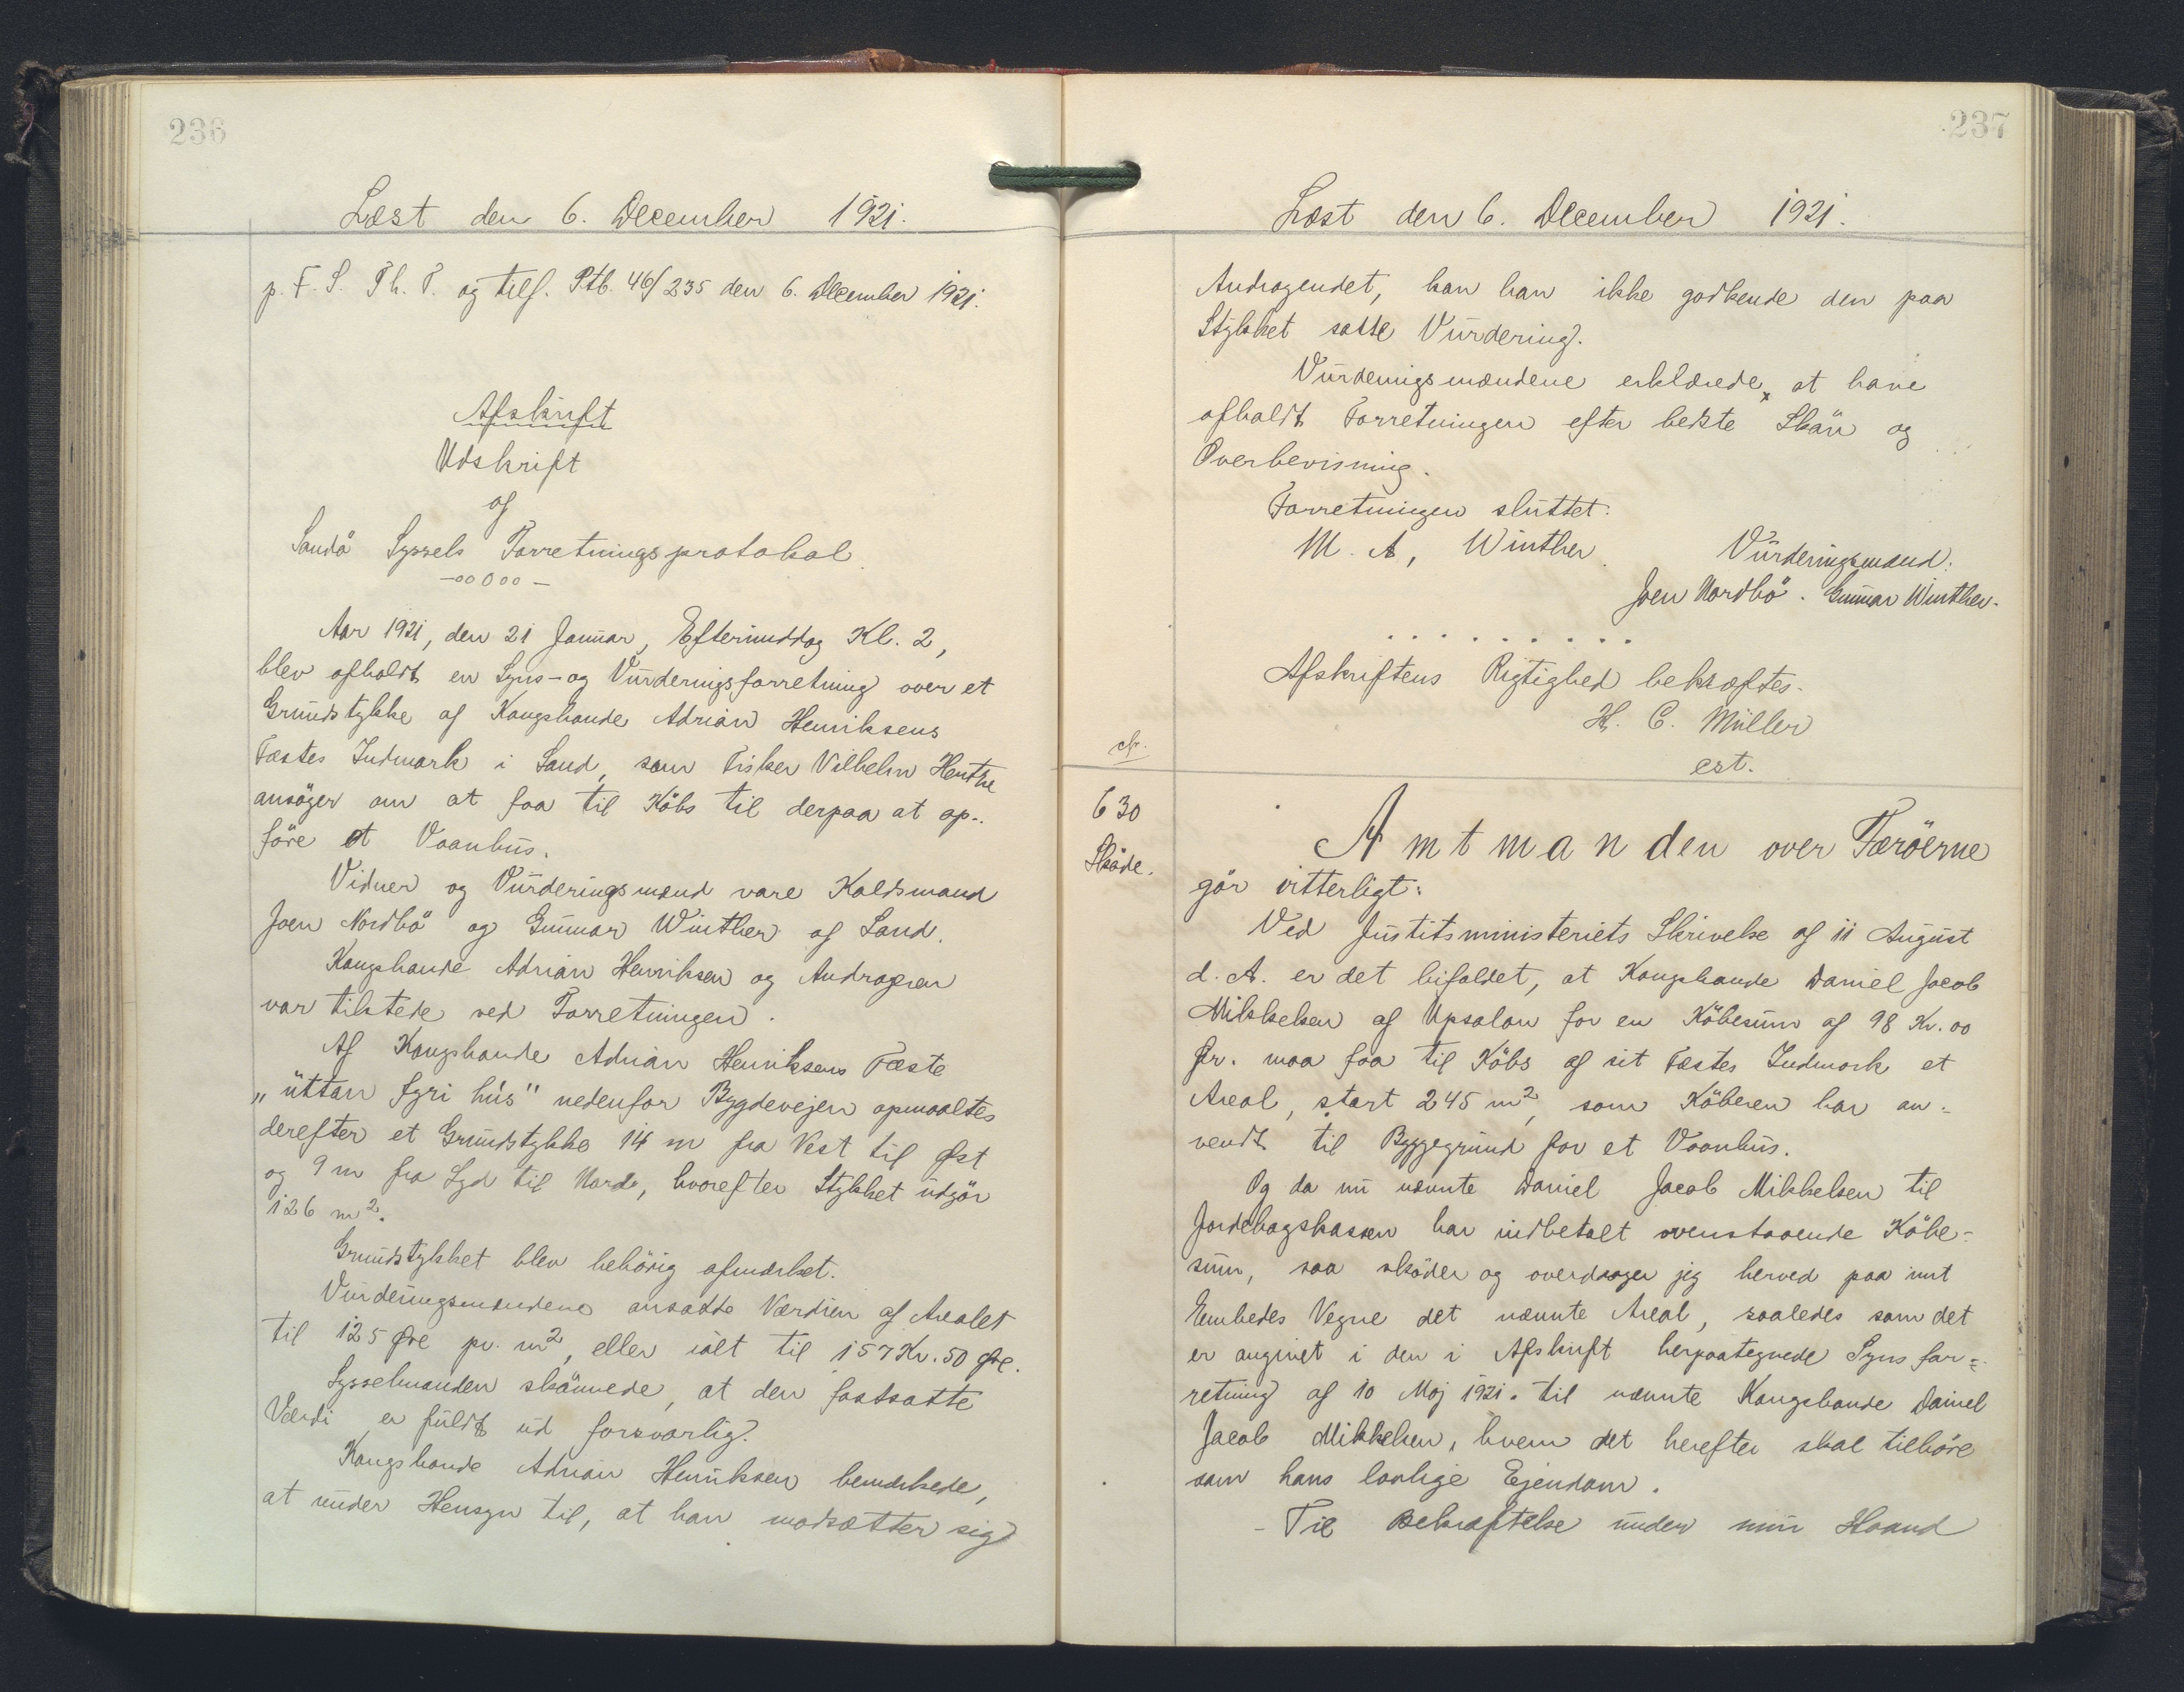 236
Læst den 6. December 1921.
p. F. S. Th. P. og tilf. Ptb. 46/235 den 6. December 1921.
Afskrift
Udskrift
af
Sandö Syssels Forretningsprotokol.
-ooOoo-
Aar 1921, den 21 Januar, Eftermiddag Kl. 2,
blev afholdt en Syns- og Vurderingsforretning over et
Grundstykke af Kongsbonde Adrian Henriksens
Fæstes Indmark i Sand, som Fisker Vilhelm Henthe
ansöger om at faa til Köbs til derpaa at op-
före et Vaanhus.
Vidner og Vurderingsmænd vare Kaldsmand
Joen Nordbö og Gunnar Winther af Sand.
Kongsbonde Adrian Henriksen og Andrageren
var tilstede ved Forretningen.
Af Kongsbonde Adrian Henriksens Fæste
"úttan fyri hús" nedenfor Bygdevejen opmaaltes
derefter et Grundstykke 14 m fra Vest til Øst
og 9 m fra Syd til Nord, hvorefter Stykket udgör
126 m².
Grundstykket blev behörig afmærket.
Vurderingsmændene ansatte Værdien af Arealet
til 125 Øre pr. m², eller ialt til 157 Kr. 50 Øre.
Sysselmanden skönnede, at den fastsatte
Værdi er fuldt ud forsvarlig.
Kongsbonde Adrian Henriksen bemærkede,
at under Hensyn til, at han modsætter sig
237
Læst den 6. December 1921.
Andragendet, kan han ikke godkende den paa
Stykket satte Vurdering.
Vurderingsmændene erklærede, at have
afholdt Forretningen efter bedste Skön og
Overbevisning.
Forretningen sluttet.
M. A. Winther. Vurderingsmænd:
Joen Nordbö. Gunnar Winther.
. . . . . . . . .
Afskriftens Rigtighed bekræftes.
H. C. Müller
cst.
630
Sköde.
Amtmanden over Færöerne
gör vitterligt:
Ved Justitsministeriets Skrivelse af 11 August
d. A. er det bifaldet, at Kongsbonde Daniel Jacob
Mikkelsen af Upsalan for en Köbesum af 98 Kr. 00
Ør. maa faa til Köbs af sit Fæstes Indmark et
Areal, stort 245 m², som Köberen har an-
vendt til Byggegrund for et Vaanhus.
Og da nu nævnte Daniel Jacob Mikkelsen til
Jordebogskassen har indbetalt ovenstaaende Köbe-
sum, saa sköder og overdrager jeg herved paa mit
Embedes Vegne det nævnte Areal, saaledes som det
er angivet i den i Afskrift herpaategnede Synsfor-
retning af 10 Maj 1921. til nævnte Kongsbonde Daniel
Jacob Mikkelsen, hvem det herefter skal tilhöre
som hans lovlige Ejendom.
- Til Bekræftelse under min Haand